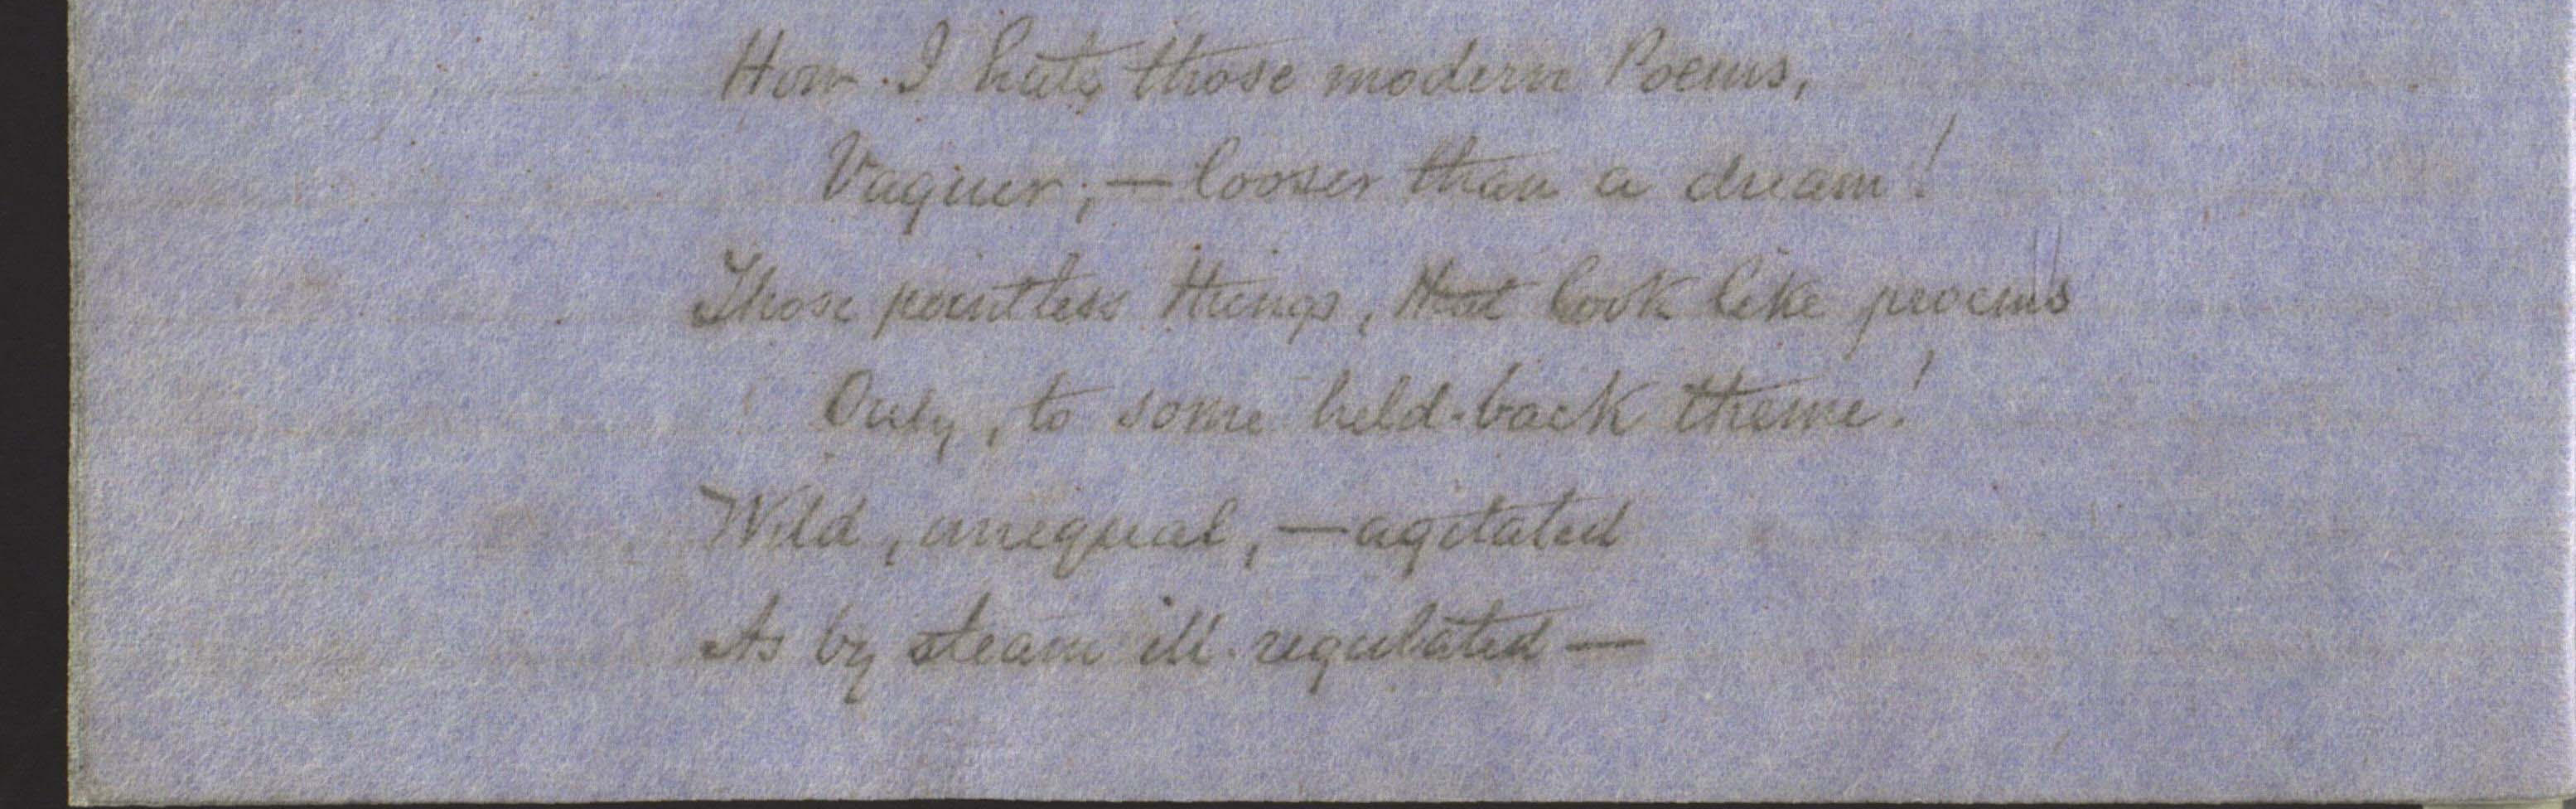 How I hate those modern Poems,
Vaguer, — looser than a dream!
Those pointless things, that look like proems
Only, to some held-back theme!
Wild, unequal, — agitated
As by steam ill-regulated —